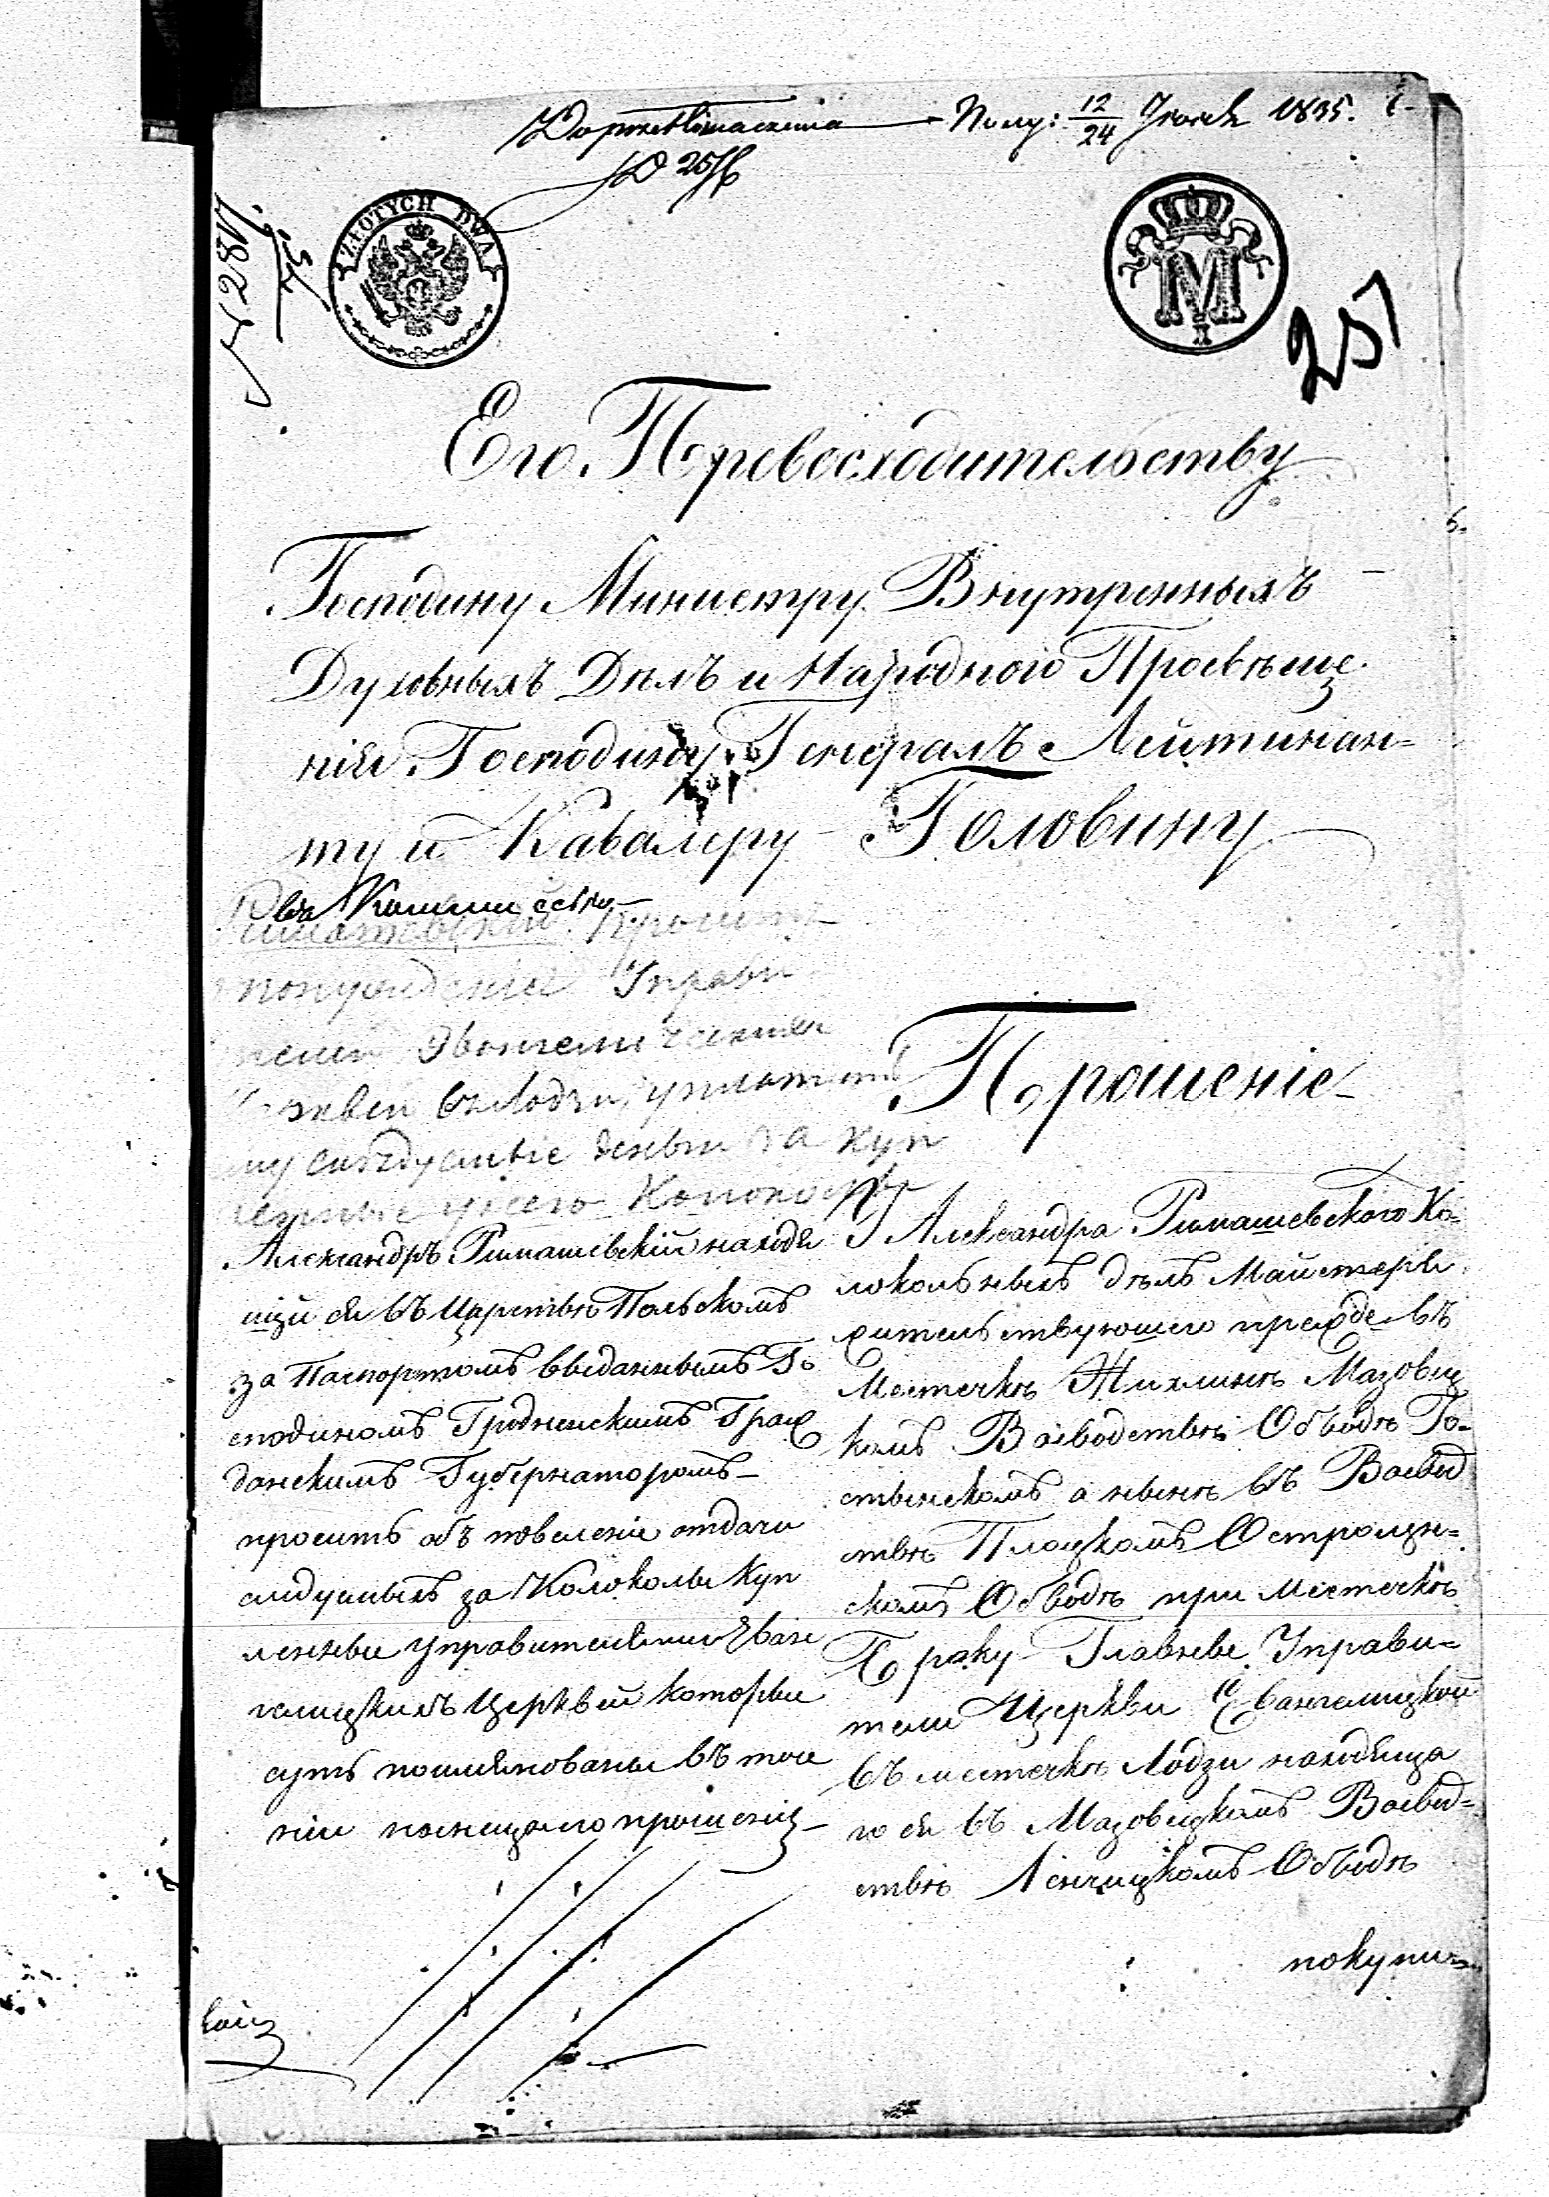 Полу: 12/24 1835.
25/6
ZŁOTYCH DWA
M
257
Его Превосходительству
Господину Министру Внутренныхъ
Духовныхъ Дѣлъ и Народного Просвѣще
нія Господину Генералъ Лейтинан=
ту и Кавалеру Головину
Прошеніе
понужденіе Управи
Евангелическія
въ Лодзи, уплатить
му слѣдуемые деньги за куп
ленные у него Колокола
Александръ Римашевскій находя
щи ся въ Царствѣ Польскомъ
за Паспортомъ выданнымъ Го
сподиномъ Гродненскимъ Граж
данскимъ Губернаторомъ
проситъ объ повеленіе отдачи
следуемыхъ за Колоколы куп
ленные Управителями Еван
гелицкихъ Церквей которые
суть поимянованы въ тое
ніи насчящаго прошенія
Александра Римашевского Ко=
локольныхъ дѣлъ Майстера
жительствующего прежде въ
Местечкѣ Жихлинѣ Мазовец
комъ Воеводствѣ Обводѣ Го=
стынскомъ а нынѣ въ Воевод
ствѣ Плоцкомъ Остролен=
скомъ Обводѣ при Местечкѣ
Броку Главные Управи=
тели Церкви Евангелицкой
въ местечкѣ Лодзи находяща
го ся въ Мазовецкомъ Воевод=
ствѣ Ленчицкомъ Обводѣ
покупи=